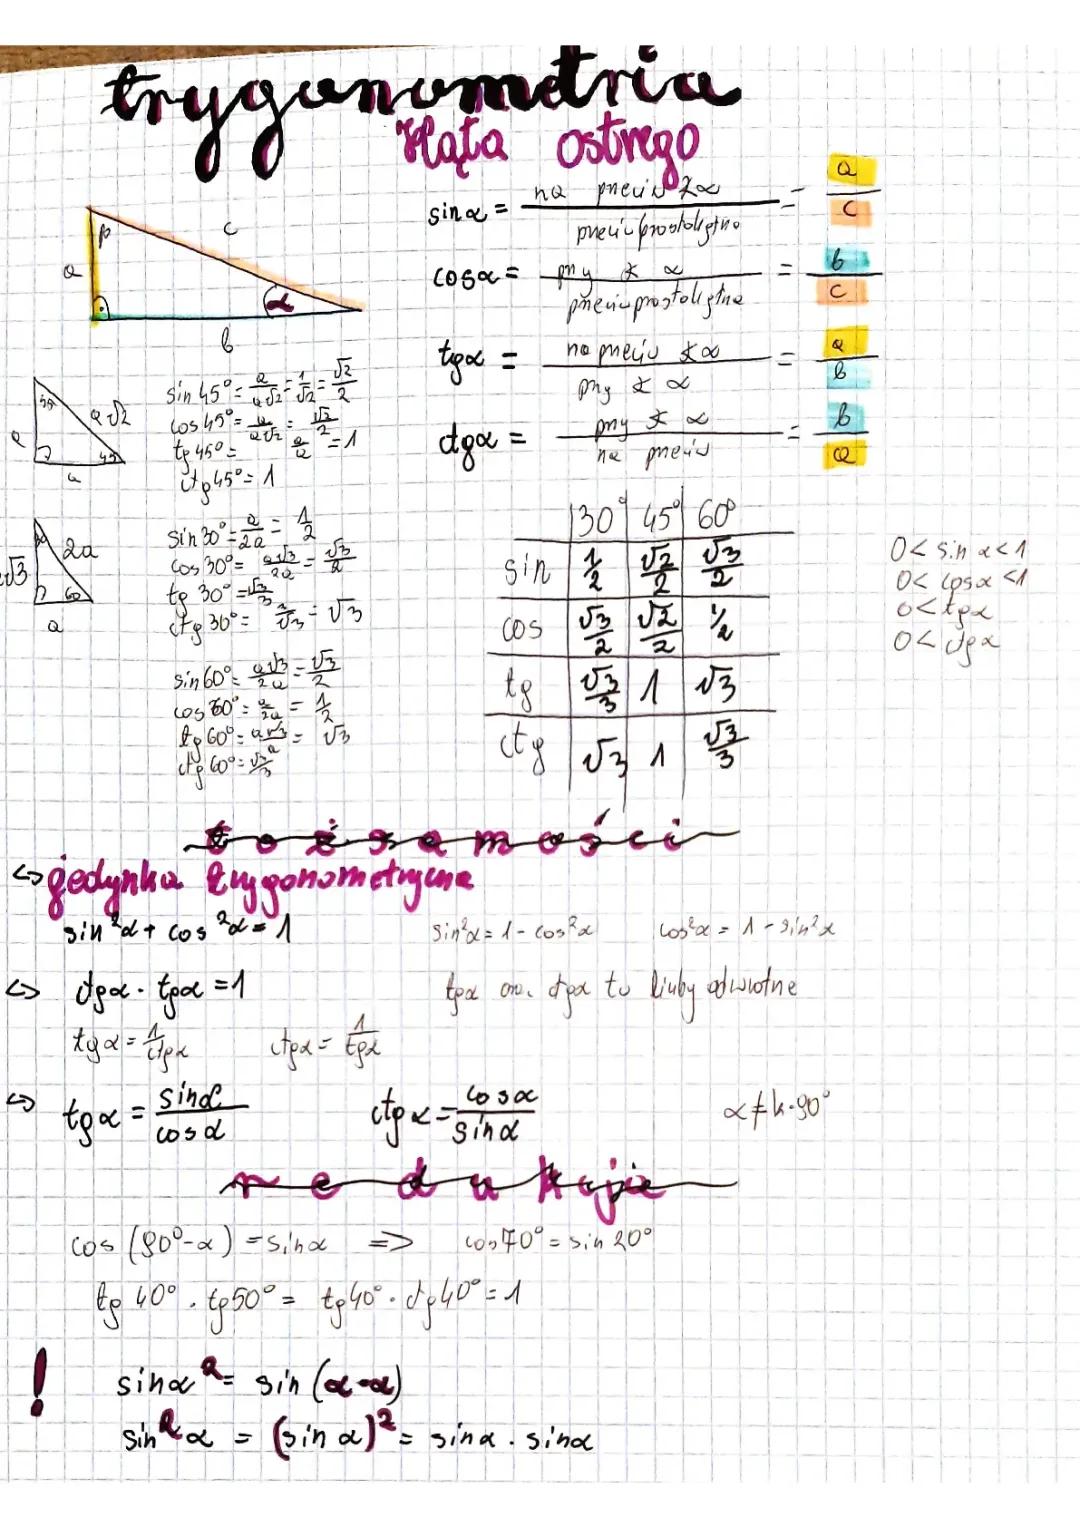 trygonometria
kąta ostrego
sin α = na przeciw ∢α / przeciwprostokątna = a / c
cos α = przy ∢ α / przeciwprostokątna = b / c
tg α = na przeciw ∢α / przy ∢ α = a / b
ctg α = przy ∢ α / na przeciw = b / a
β
c
a
α
b
a√2
a
45
a
sin 45° = a/a√2 = 1/√2 = √2/2
cos 45° = a/a√2 = √2/2
tg 45° = a/a = 1
ctg 45° = 1
2a
√3
60
a
sin 30° = a/2a = 1/2
cos 30° = a√3/2a = √3/2
tg 30° = √3/3
ctg 30° = √3
sin 60° = a√3/2a = √3/2
cos 60° = a/2a = 1/2
tg 60° = a√3/a = √3
ctg 60° = √3/3
30° 45° 60°
sin 1/2 √2/2 √3/2
cos √3/2 √2/2 1/2
tg √3/3 1 √3
ctg √3 1 √3/3
0 < sin α < 1
0 < cos α < 1
0 < tg α
0 < ctg α
tożsamości
↪ jedynka trygonometryczna
sin²α + cos²α = 1 sin²α = 1 - cos²α cos²α = 1 - sin²α
↪ ctg α · tg α = 1 tg α oraz ctg α to liczby odwrotne
tg α = 1/ctg α ctg α = 1/tg α
↪ tg α = sin α / cos α ctg α = cos α / sin α α ≠ k·90°
redukcja
cos (90° - α) = sin α => cos 70° = sin 20°
tg 40° · tg 50° = tg 40° · ctg 40° = 1
!
sin α² = sin (α·α)
sin² α = (sin α)² = sin α · sin α